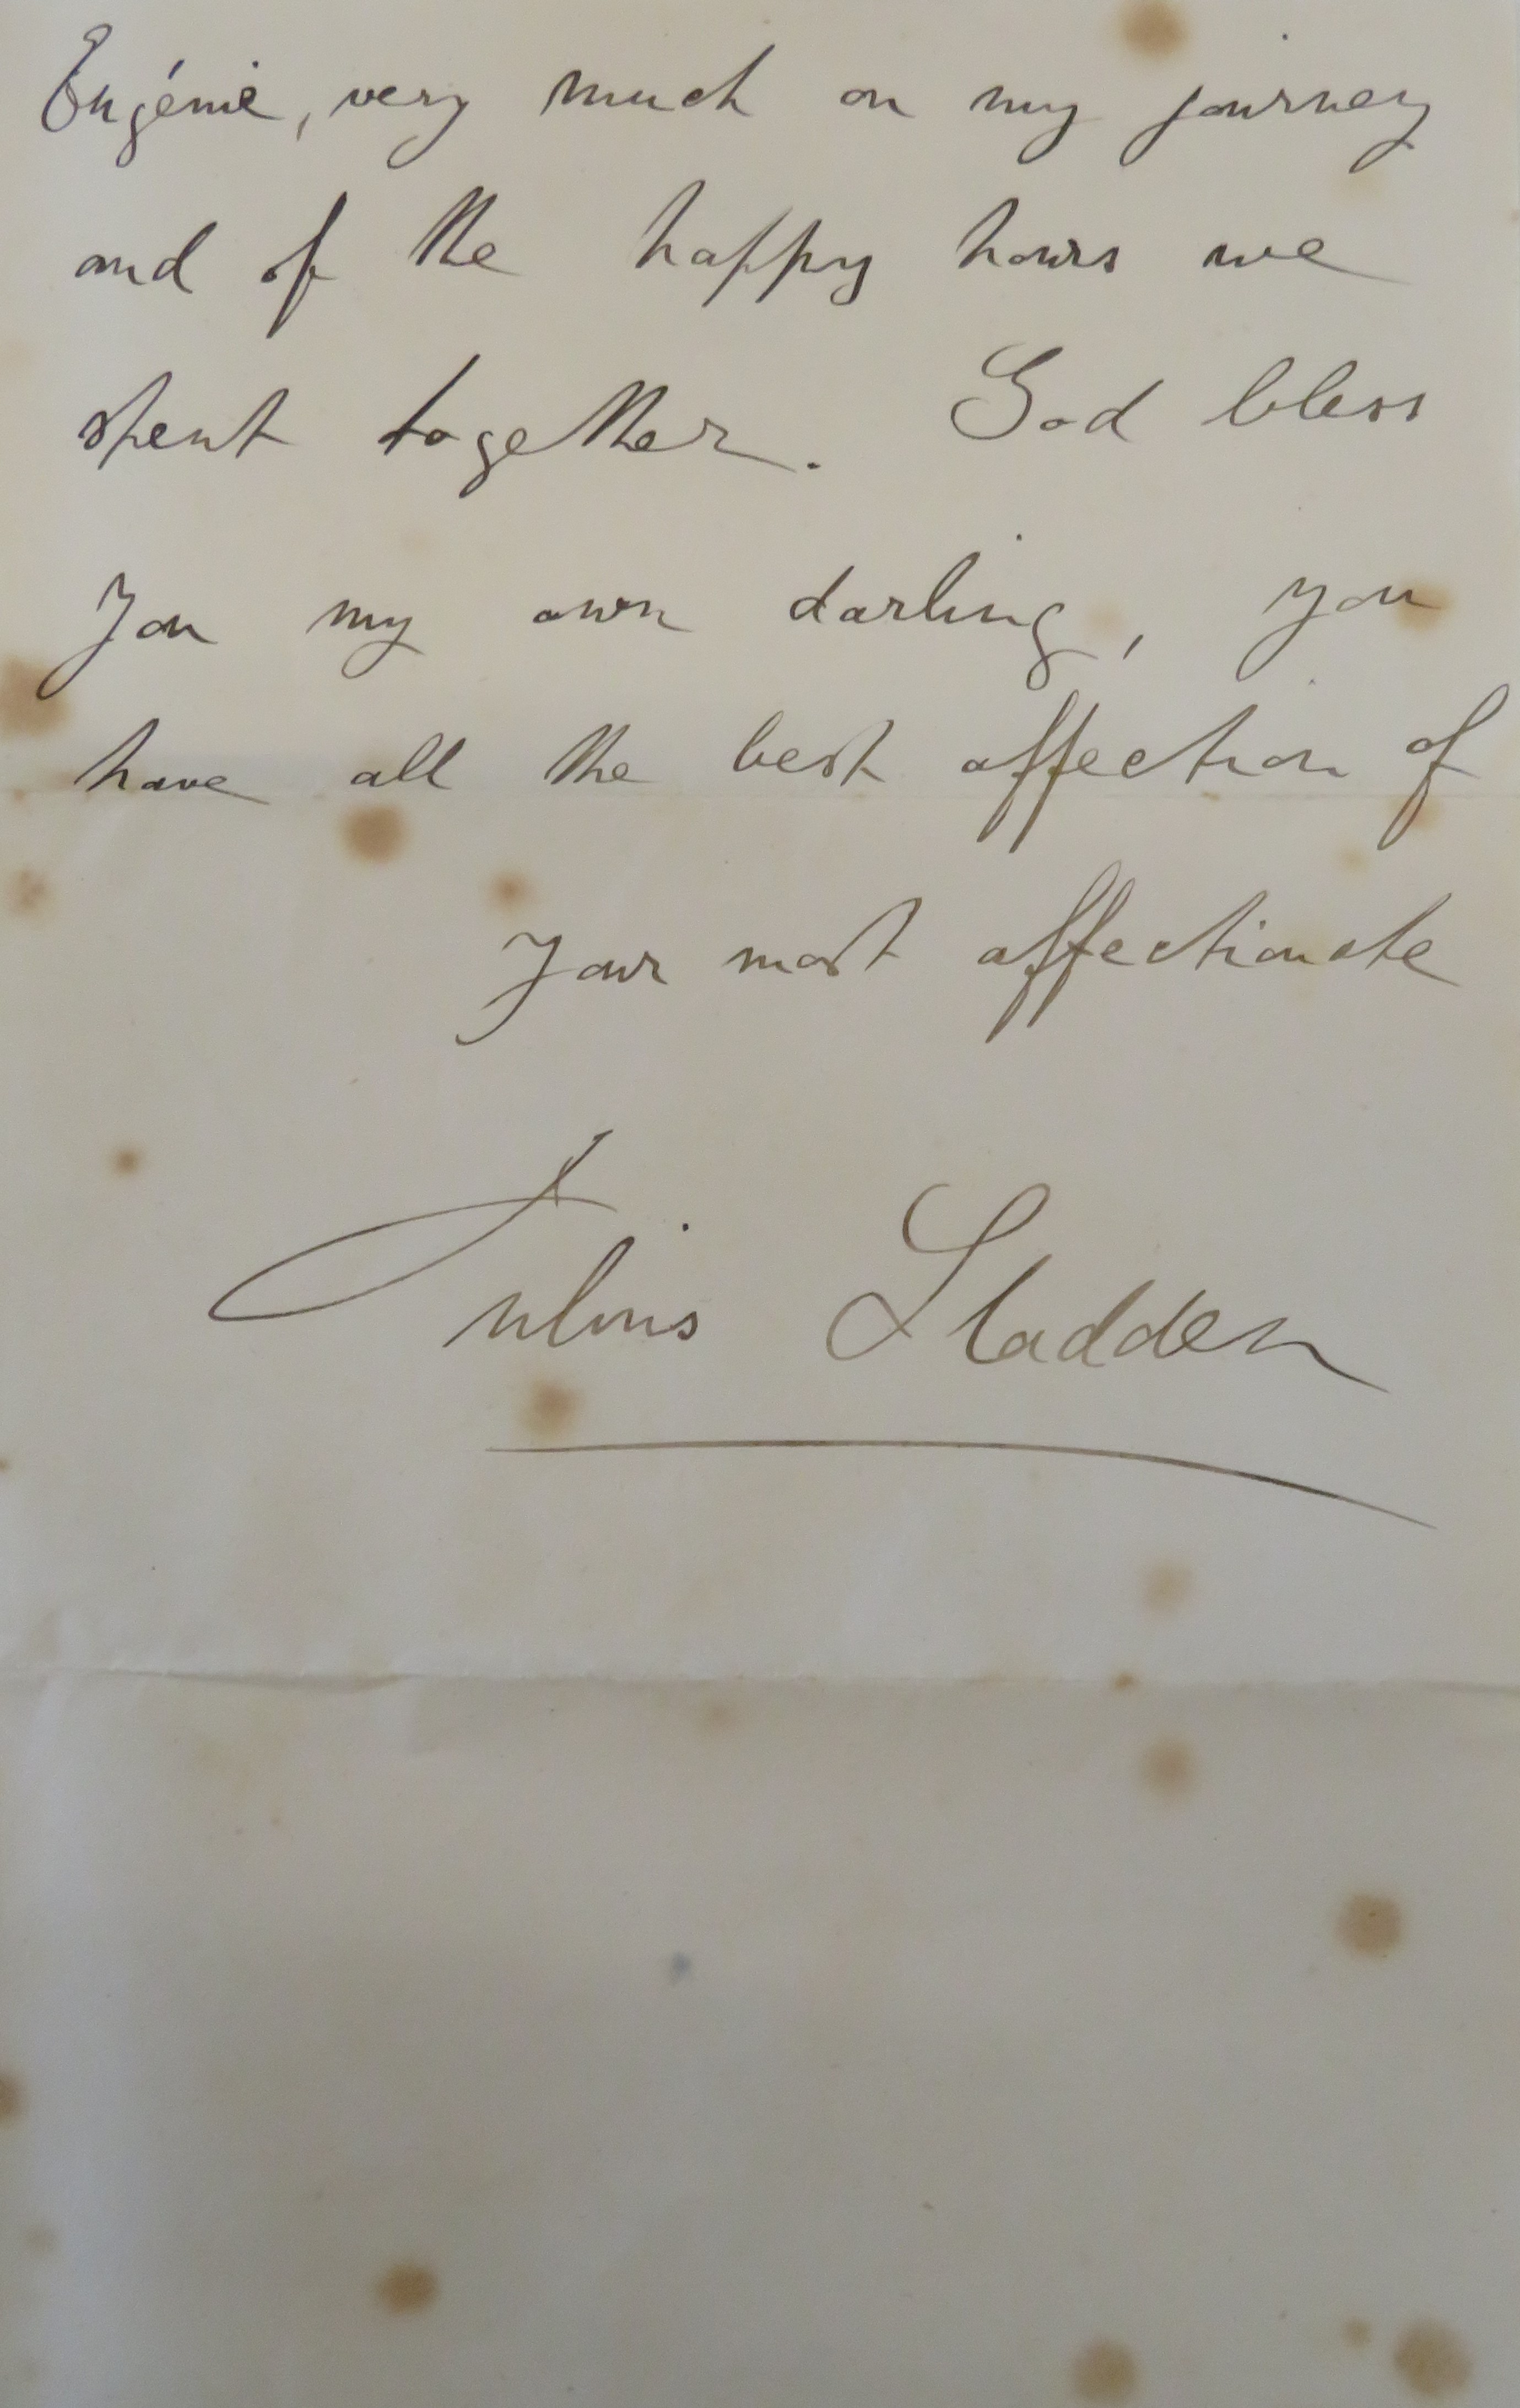 Eugénie, very much on my journey
and of the happy hours we
spent together. God bless
you my own darling, you
have all the best affection of
your most affectionate
Julius Sladden